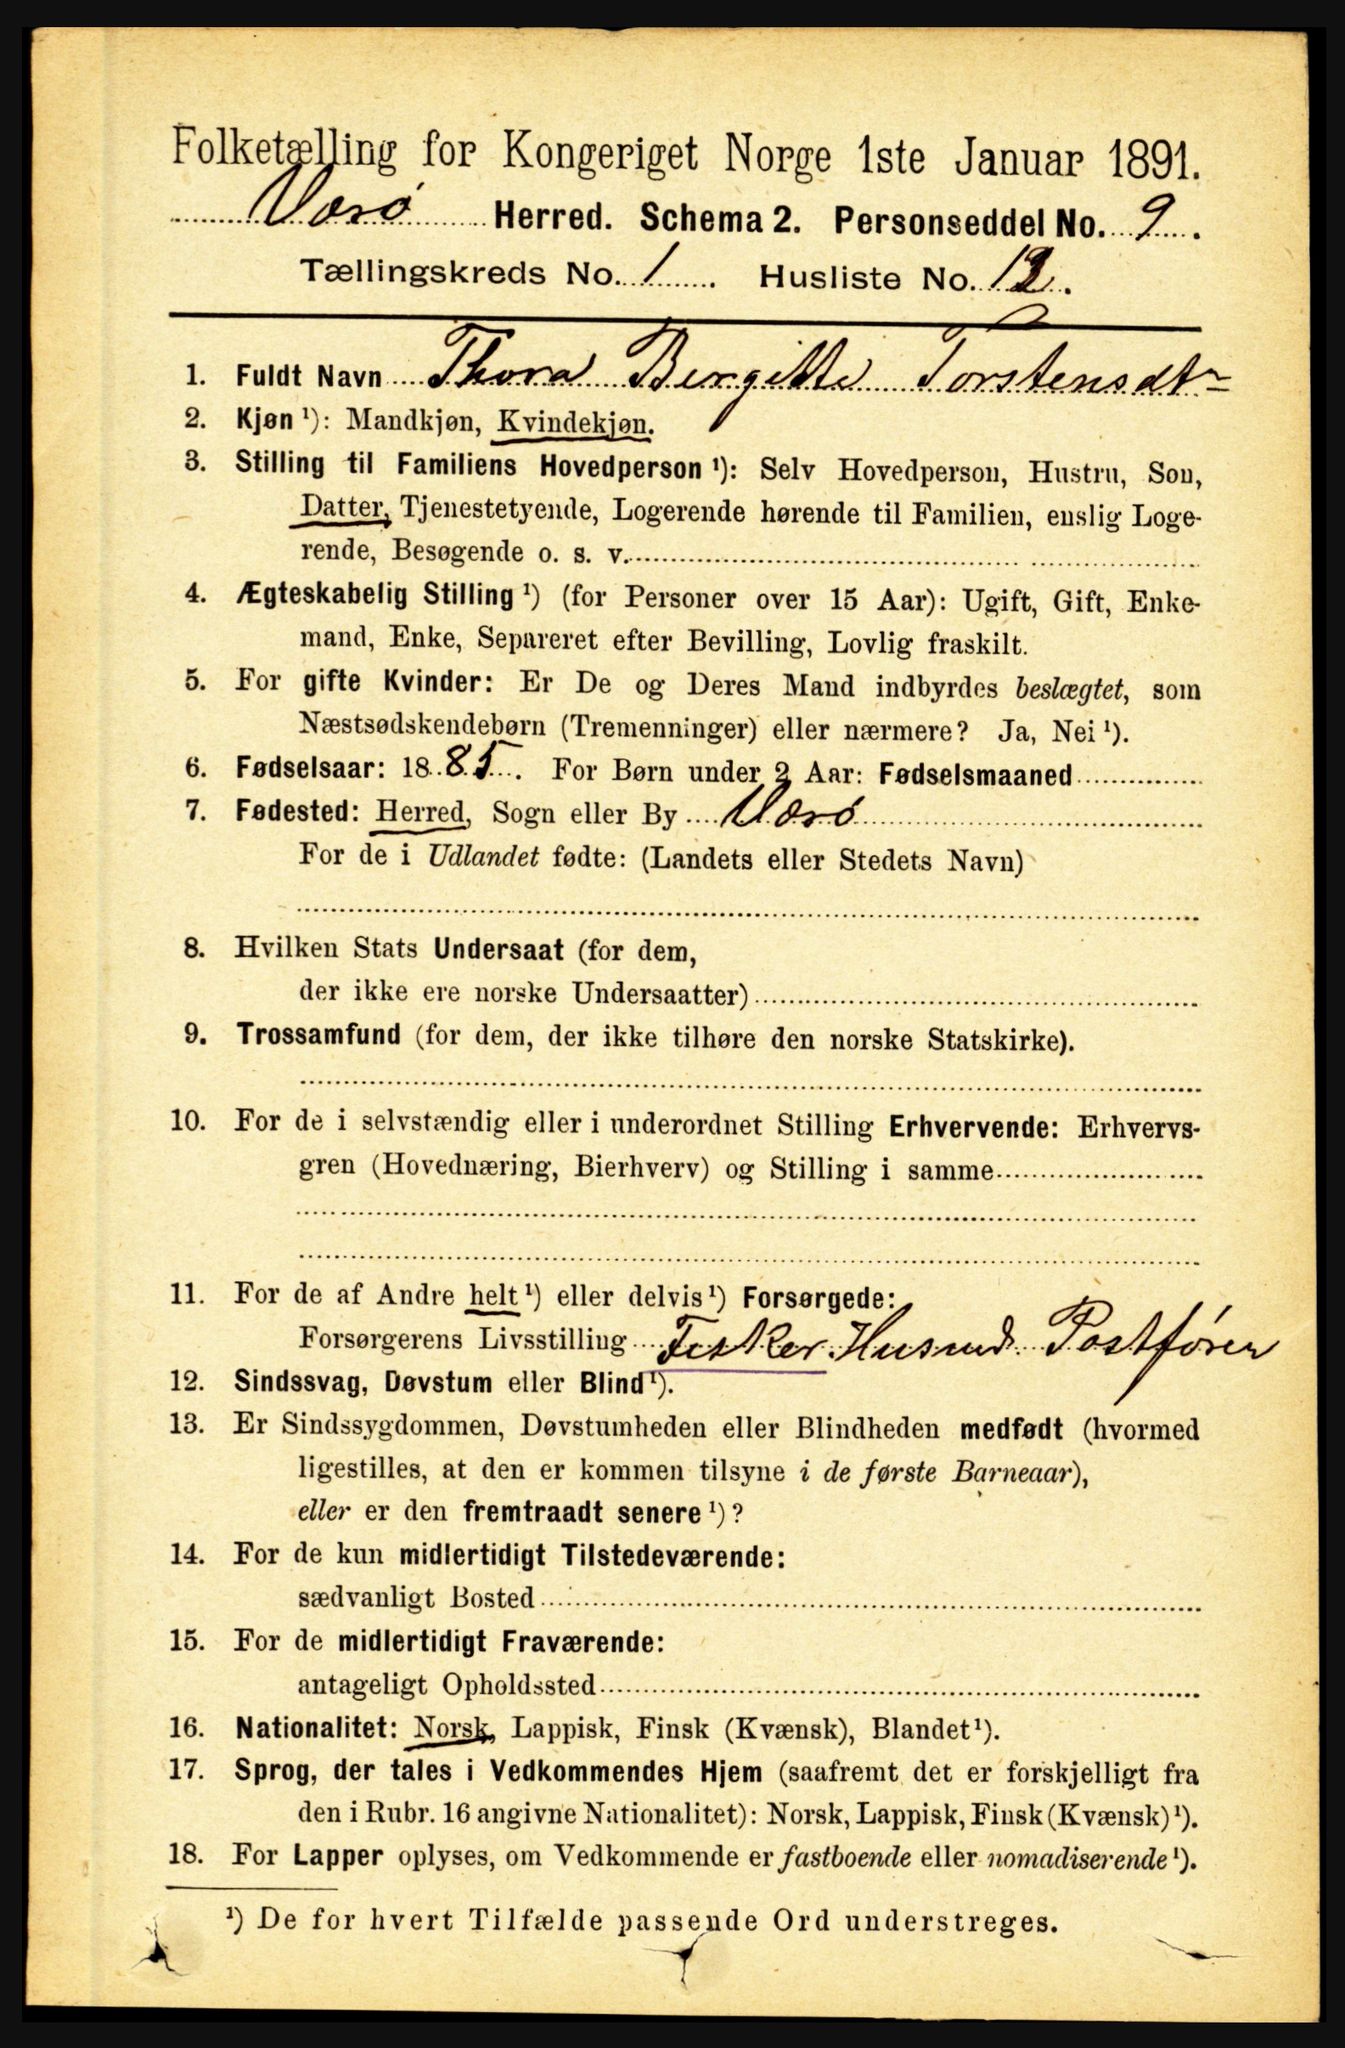 Folketælling for Kongeriget Norge 1ste Januar 1891.
Værø Herred. Schema 2. Personseddel No. 9.
Tællingskreds No. 1. Husliste No. 12.
1. Fuldt Navn Thora Bergitte Torstensdtr
2. Kjøn ¹): Mandkjøn, Kvindekjøn.
3. Stilling til Familiens Hovedperson ¹): Selv Hovedperson, Hustru, Søn,
Datter, Tjenestetyende, Logerende hørende til Familien, enslig Loge-
rende, Besøgende o. s. v.
4. Ægteskabelig Stilling ¹) (for Personer over 15 Aar): Ugift, Gift, Enke-
mand, Enke, Separeret efter Bevilling, Lovlig fraskilt.
5. For gifte Kvinder: Er De og Deres Mand indbyrdes beslægtet, som
Næstsødskendebørn (Tremenninger) eller nærmere? Ja, Nei ¹).
6. Fødselsaar: 1885. For Børn under 2 Aar: Fødselsmaaned
7. Fødested: Herred, Sogn eller By Værø
For de i Udlandet fødte: (Landets eller Stedets Navn)
8. Hvilken Stats Undersaat (for dem,
der ikke ere norske Undersaatter)
9. Trossamfund (for dem, der ikke tilhøre den norske Statskirke).
10. For de i selvstændig eller i underordnet Stilling Erhvervende: Erhvervs-
gren (Hovednæring, Bierhverv) og Stilling i samme
11. For de af Andre helt ¹) eller delvis ¹) Forsørgede:
Forsørgerens Livsstilling Fisker Husmd Postfører
12. Sindssvag, Døvstum eller Blind ¹).
13. Er Sindssygdommen, Døvstumheden eller Blindheden medfødt (hvormed
ligestilles, at den er kommen tilsyne i de første Barneaar),
eller er den fremtraadt senere ¹)?
14. For de kun midlertidigt Tilstedeværende:
sædvanligt Bosted
15. For de midlertidigt Fraværende:
antageligt Opholdssted
16. Nationalitet: Norsk, Lappisk, Finsk (Kvænsk), Blandet ¹).
17. Sprog, der tales i Vedkommendes Hjem (saafremt det er forskjelligt fra
den i Rubr. 16 angivne Nationalitet): Norsk, Lappisk, Finsk (Kvænsk) ¹).
18. For Lapper oplyses, om Vedkommende er fastboende eller nomadiserende ¹).
¹) De for hvert Tilfælde passende Ord understreges.